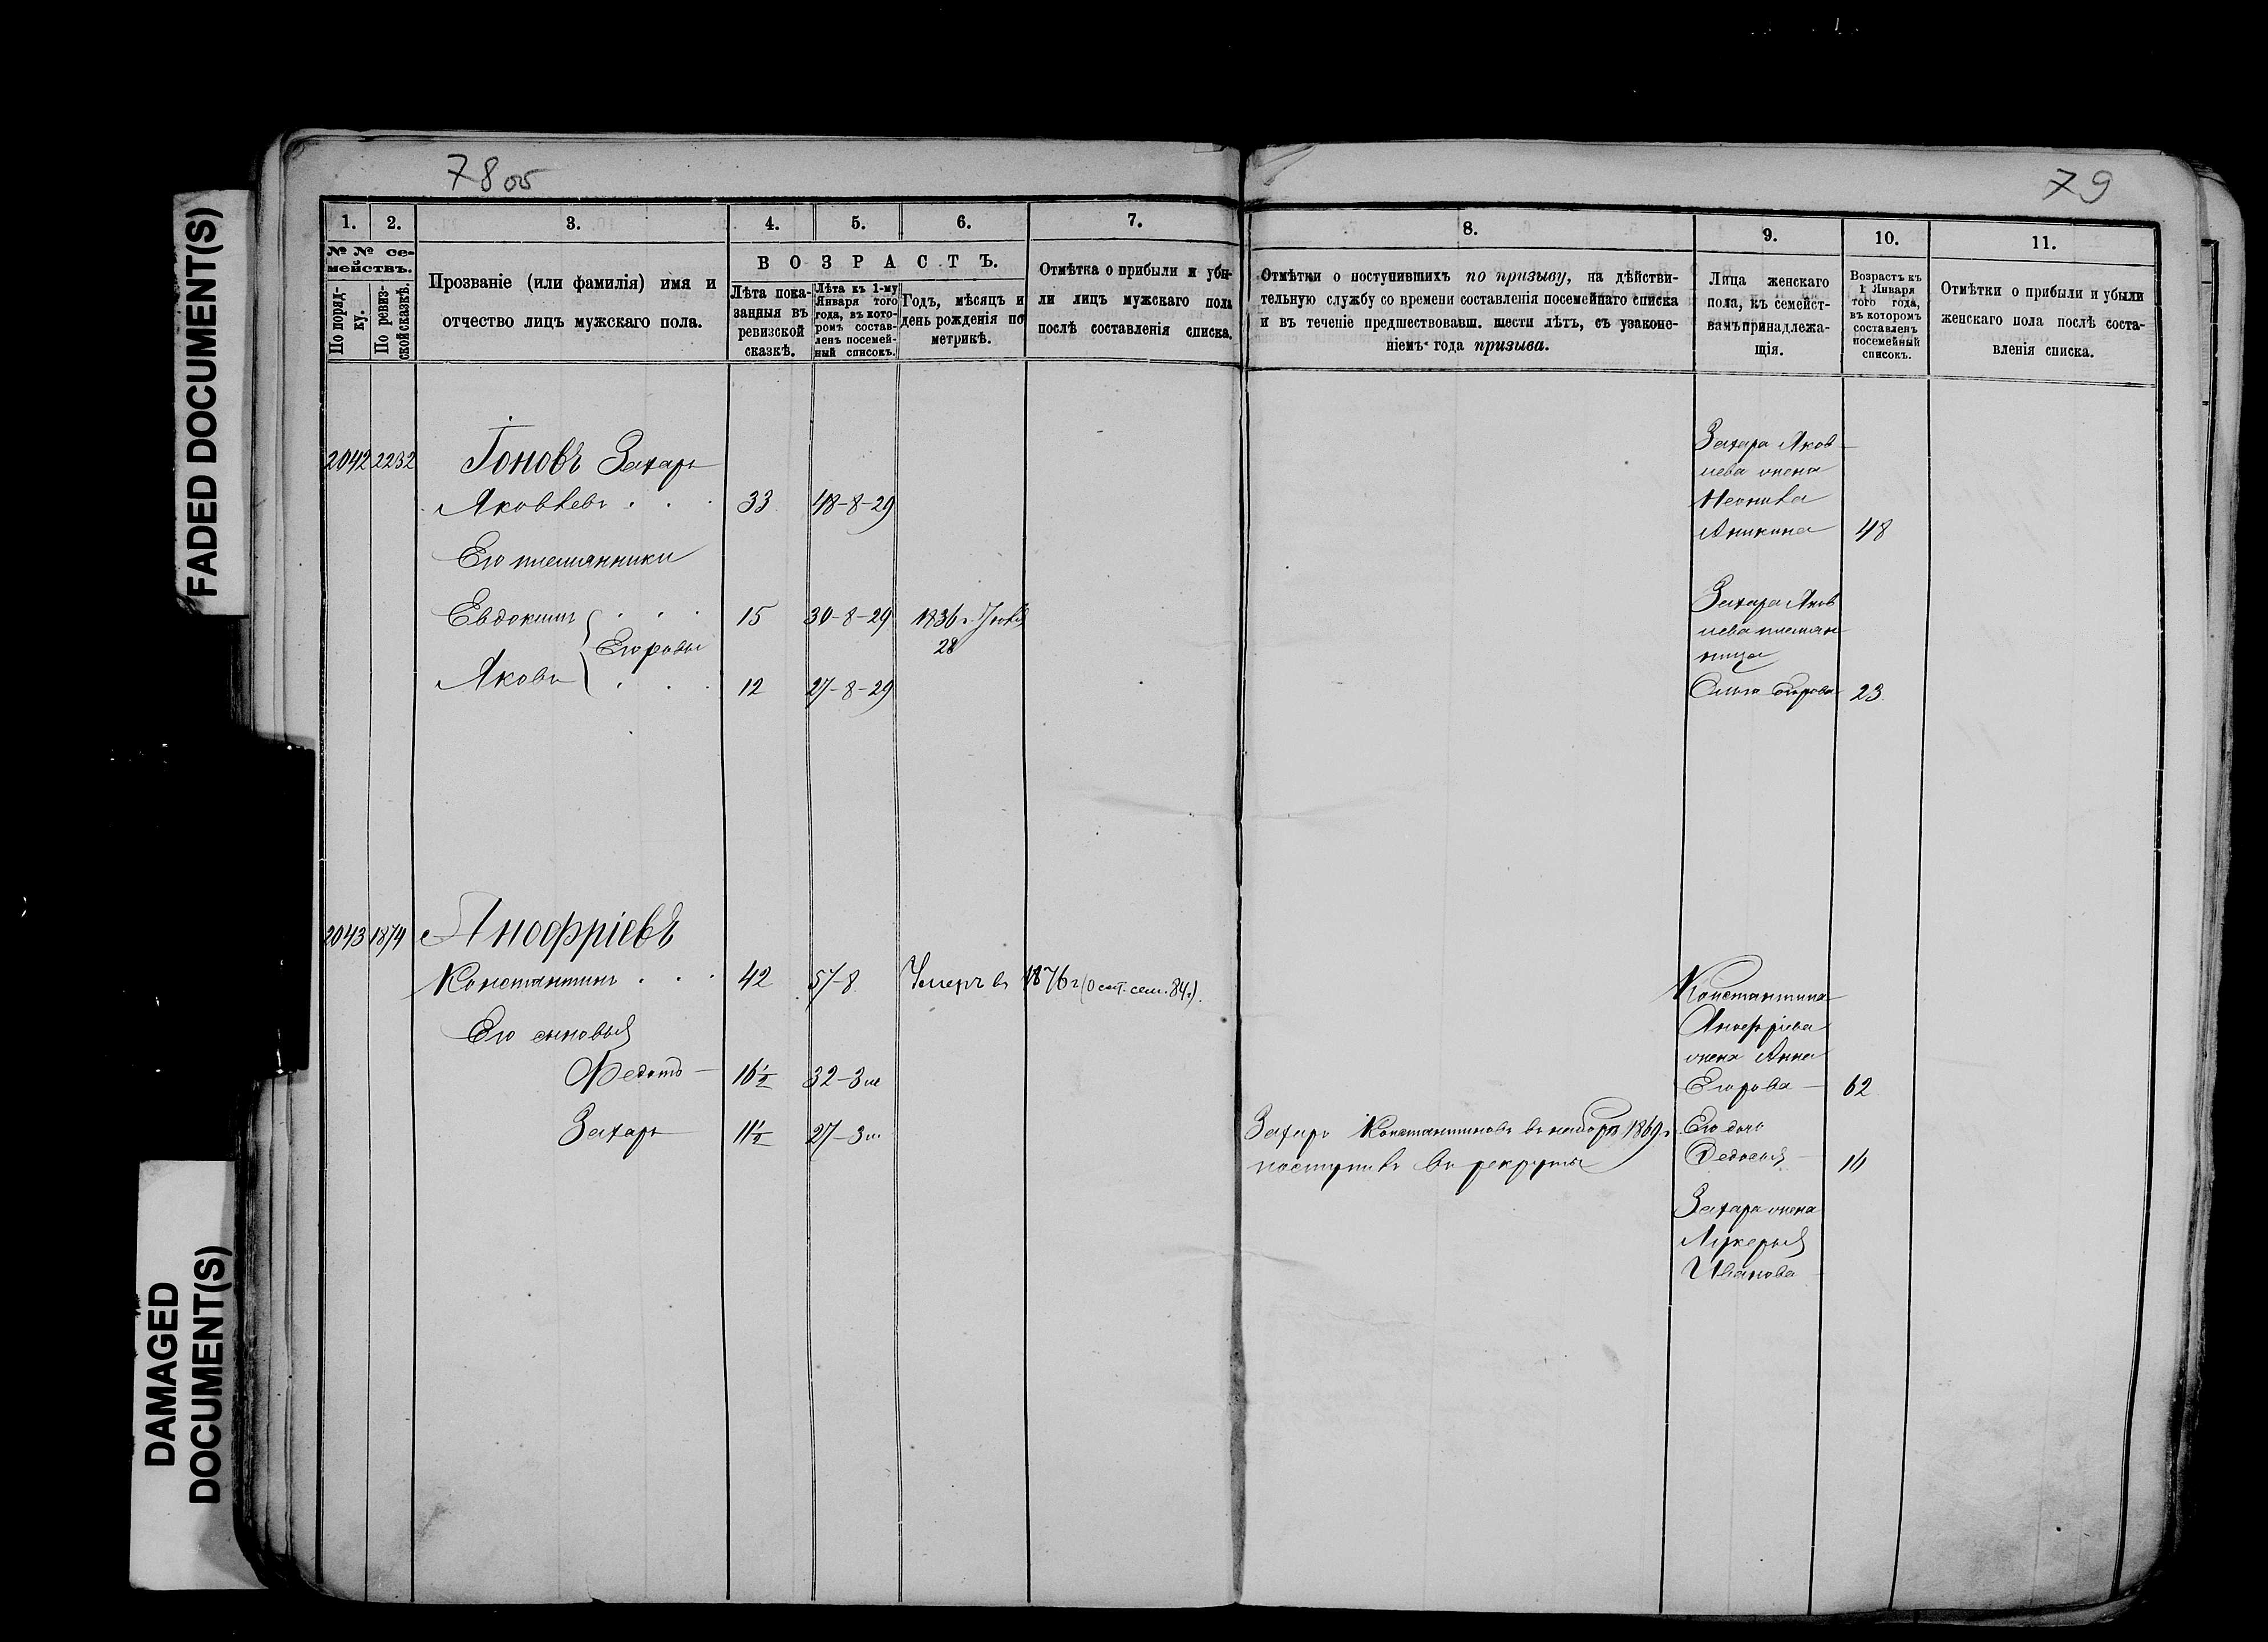 FADED DOCUMENT(S)
DAMAGED
DOCUMENT(S)
78 об
1.
2.
3.
4.
5.
6.
7.
№ № се-
мействъ.
По поряд-
ку.
По ревиз-
ской сказкѣ.
Прозваніе (или фамилія) имя и
отчество лицъ мужскаго пола.
ВОЗРАСТЪ.
Лѣта пока-
занныя въ
ревизской
сказкѣ.
Лѣта къ 1-му
Января того
года, въ кото-
ромъ состав-
ленъ посемей-
ный списокъ.
Годъ, мѣсяцъ и
день рожденія по
метрикѣ.
Отмѣтка о прибыли и убы-
ли лицъ мужскаго пола
послѣ составленія списка.
2042 2232 Іоновъ Захаръ
Яковлевъ . . . 33 48-8-29
Его племянники
Евдокимъ . . . 15 30-8-29 1836 г. Іюля
Егоровы 28
Яковъ . . . 12 27-8-29
2043 1874 Анофріевъ
Константинъ . . . 42 57-8 Умеръ въ 1876 г
Его сыновья
Федотъ 16½ 32-3м
Захаръ 11½ 27-3м
79
8.
9.
10.
11.
Отмѣтки о поступившихъ по призыву, на дѣйстви-
тельную службу со времени составленія посемейнаго списка
и въ теченіе предшествовавш. шести лѣтъ, съ узаконе-
ніемъ года призыва.
Лица женскаго
пола, къ семейст-
вамъ принадлежа-
щія.
Возрастъ къ
1 Января
того года,
въ которомъ
составленъ
посемейный
списокъ.
Отмѣтки о прибыли и убыли
женскаго пола послѣ соста-
вленія списка.
Захара Яков-
лева жена
Неонила
Аникина 48
Захара Яков
лева племян
ница
Ольга Егорова 23
Константина
Анофріева
жена Анна
Егорова 62
Захаръ Константиновъ въ наборъ 1869 г. Его дочь
поступилъ въ рекруты Федосья 16
Захара жена
Лукерья
Иванова